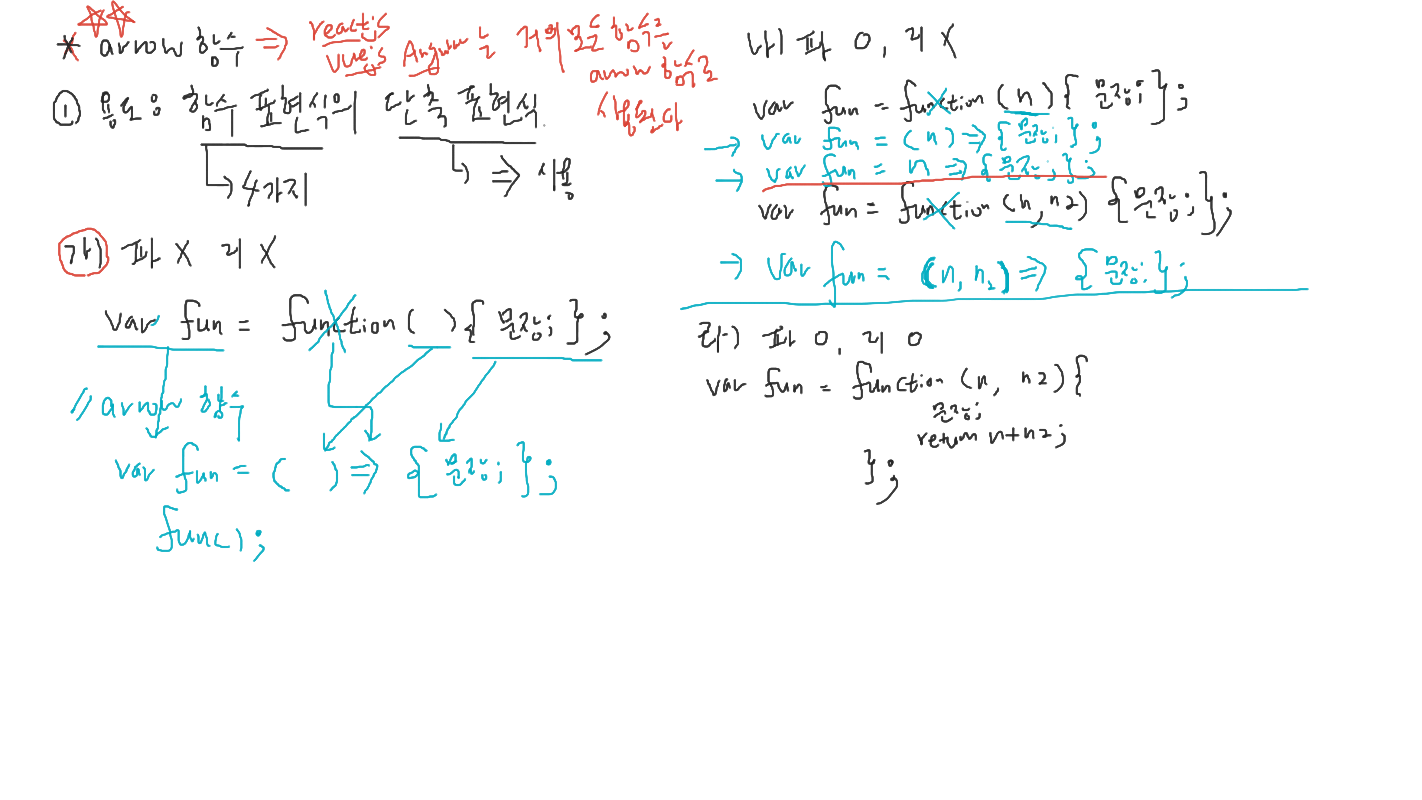 * arrow 함수 ⇒ reactjs
vuejs Angular 는 거의 모든 함수를
arrow 함수로
사용된다
① 용도 함수 표현식의 단축 표현식.
→ 4가지
→ ⇒ 사용
가) 파 X 리 X
var fun = function ( ) { 문장; };
// arrow 함수
var fun = ( ) ⇒ { 문장; };
fun();
나) 파 O, 리 X
var fun = function (n) { 문장; };
→ var fun = (n) ⇒ { 문장; };
→ var fun = n ⇒ { 문장; };
var fun = function (n, n2) { 문장; };
→ var fun = (n, n2) ⇒ { 문장; };
라) 파 O, 리 O
var fun = function (n, n2) {
문장;
return n+n2;
};